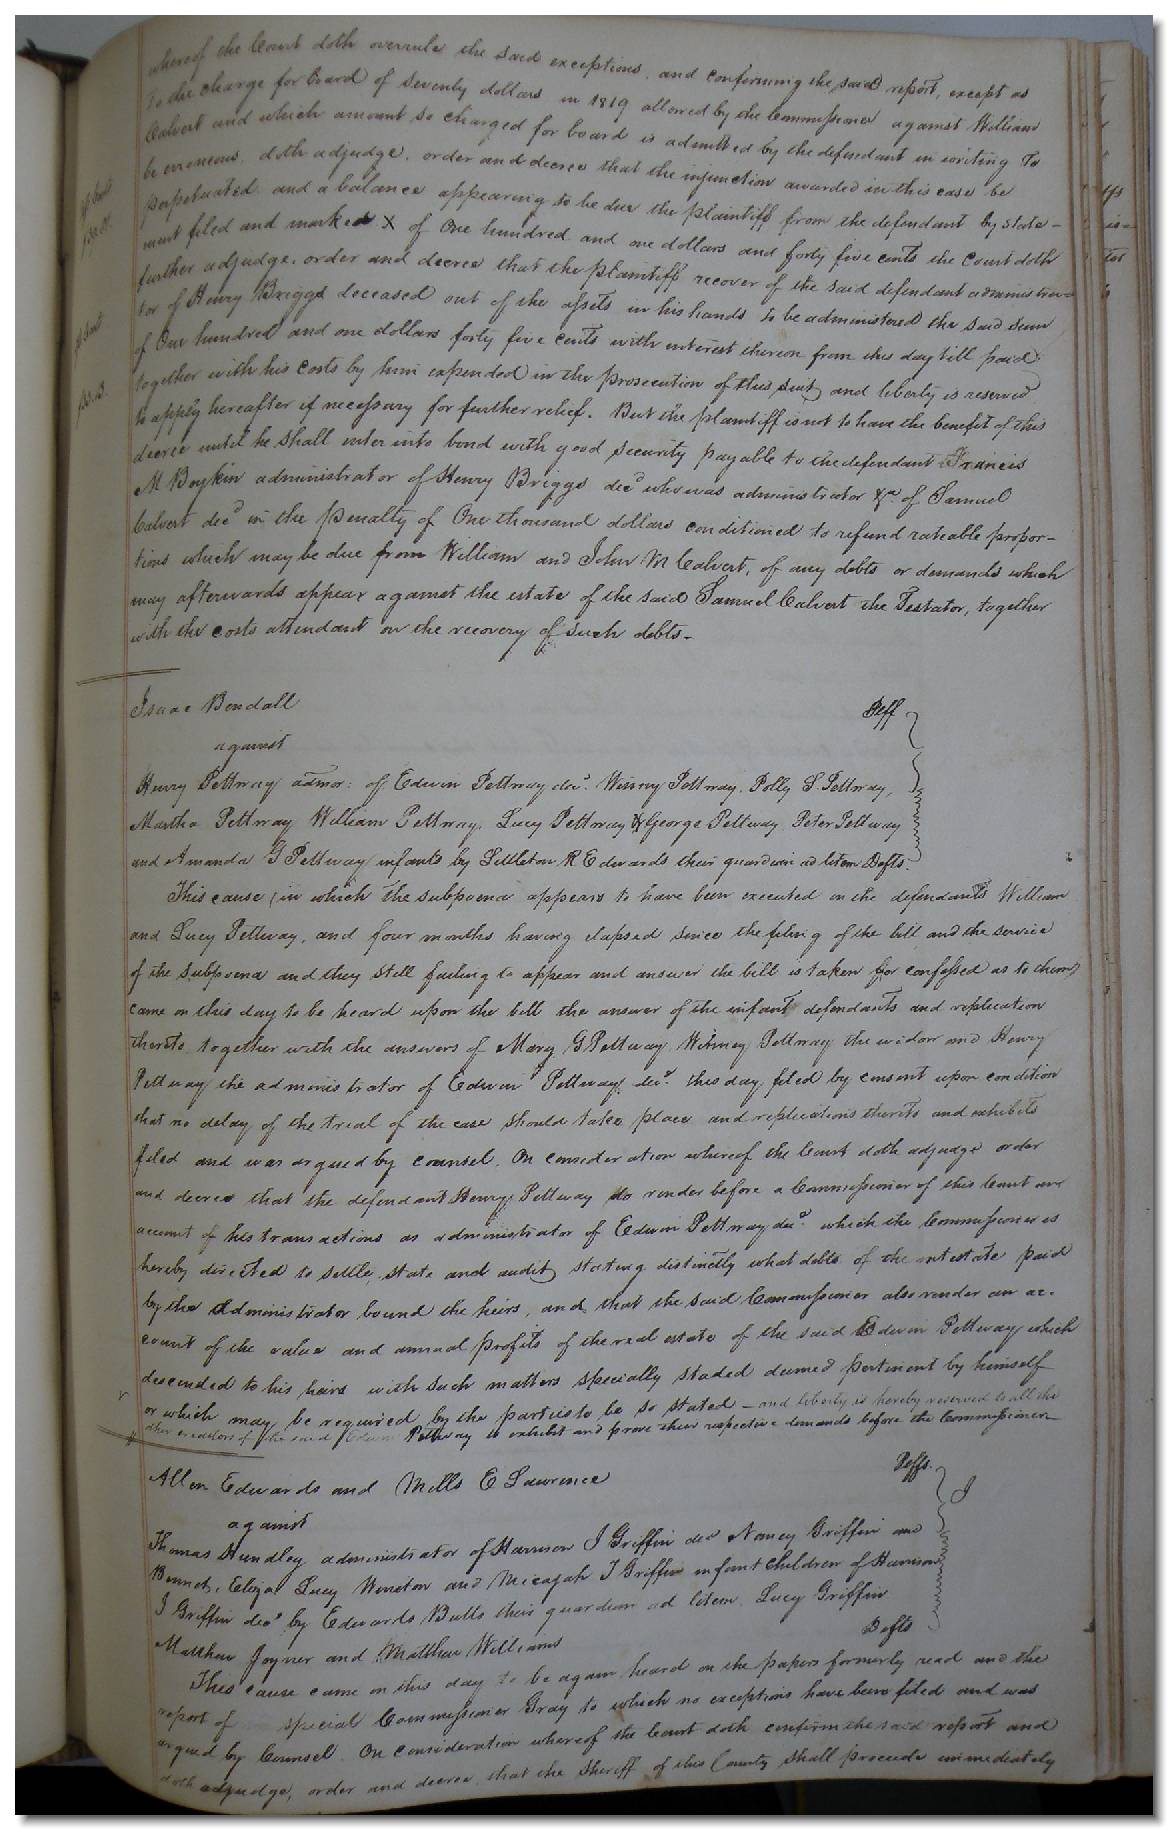 whereof the Court doth overrule the said exceptions, and confirming the said report, except as
to the charge for board of seventy dollars in 1819 allowed by the Commissioner against William
Calvert and which amount so charged for board is admitted by the defendant in writing to
be erroneous, doth adjudge, order and decree that the injunction awarded in this case be
perpetuated and a balance appearing to be due the plaintiff from the defendant by state-
ment filed and marked X of One hundred and one dollars and forty five cents the Court doth
further adjudge, order and decree that the plaintiff recover of the said defendant administra-
tor of Henry Briggs deceased out of the assets in his hands to be administered the said sum
of One hundred and one dollars forty five cents with interest thereon from this day till paid
together with his costs by him expended in the prosecution of this suit, and liberty is reserved
to apply hereafter if necessary for further relief. But the plaintiff is not to have the benefit of this
decree until he shall enter into bond with good security payable to the defendant Francis
M Boykin administrator of Henry Briggs decd who was administrator &c. of Samuel
Calvert decd in the penalty of One thousand dollars conditioned to refund rateable propor-
tions which may be due from William and John M Calvert, of any debts or demands which
may afterwards appear against the estate of the said Samuel Calvert the Testator, together
with the costs attendant on the recovery of such debts-
Isaac Bendall Peff
against
Henry Pettway admor: of Edwin Pettway decd. Winny Pettway, Polly S. Pettway,
Martha Pettway William Pettway, Lucy Pettway & George Pettway Peter Pettway
and Amanda G Pettway infants by Littleton R Edwards their guardian ad litem Defts.
This cause (in which the subpoena appears to have been executed on the defendants William
and Lucy Pettway, and four months having elapsed since the filing of the bill and the service
of the subpoena and they still failing to appear and answer the bill is taken for confessed as to them)
came on this day to be heard upon the bill the answer of the infant defendants and replication
thereto, together with the answers of Mary G Pettway, Winney Pettway the widow and Henry
Pettway the administrator of Edwin Pettway, decd. this day filed by consent upon condition
that no delay of the trial of the case should take place and replications thereto and exhibits
filed and was argued by counsel. On consideration whereof the Court doth adjudge order
and decree that the defendant Henry Pettway do render before a Commissioner of this Court an
account of his transactions as administrator of Edwin Pettway decd. which the Commissioner is
hereby directed to settle, state and audit, stating distinctly what debts of the intestate paid
by the Administrator bound the heirs, and that the said Commissioner also render an ac-
count of the value and annual profits of the real estate of the said Edwin Pettway which
descended to his heirs with such matters specially stated deemed pertinent by himself
or which may be required by the parties to be so stated - and liberty is hereby reserved to all the
other creditors of the said Edwin Pettway to exhibit and prove their respective demands before the Commissioner
Allen Edwards and Mills E Lawrence Peffs.
against
Thomas Hundley administrator of Harrison J Griffin decd Nancy Griffin and
Bennet, Eliza, Lucy Winston and Micajah T Griffin infant children of Harrison
J Griffin decd by Edwards Butts their guardian ad litem, Lucy Griffin
Matthew Joyner and Matthew Williams Defts
This cause came on this day to be again heard on the papers formerly read and the
report of special Commissioner Gray to which no exceptions have been filed and was
argued by Counsel. On consideration whereof the Court doth confirm the said report and
doth adjudge, order and decree, that the Sheriff of this County shall proceede immediately